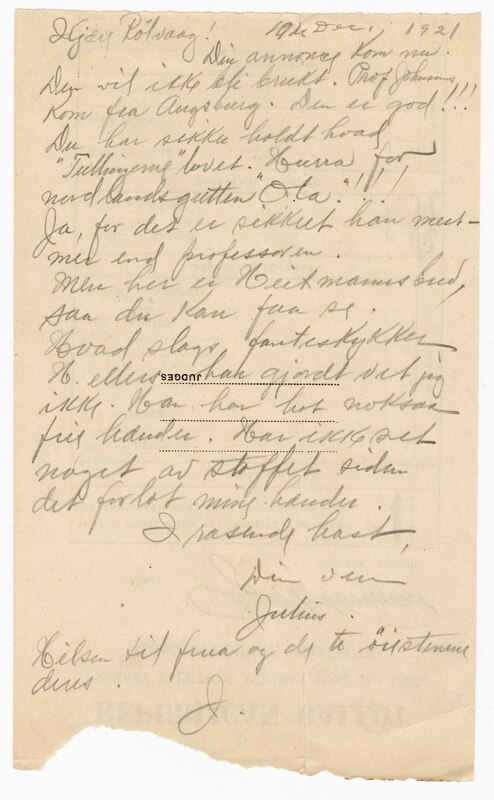 Kjære Rölvaag! 19de Dec. 1921
Din annonce kom nu.
Den vil ikke bli brukt. Prof. Johnsons
kom fra Augsburg. Den er god!!!
Du har sikker holdt hvad
"Tullingerne" lovet. Hurra for
nordlandsgutten "Ola"!!!!
Ja, for det er sikkert han mest
mer end professoren.
Men her er Heitmanns bud,
saa du kan faa se.
Hvad slags fantestykker
H. ellers har gjordt vet jeg
JUDGES
ikke. Han har hat noksaa
frie hænder. Har ikke set
noget av stoffet siden
det forlot mine hænder.
I rasende hast,
Din ven
Julius.
Hilsen til frua og de to
deres. J.
REPUBLICAN BALLOT